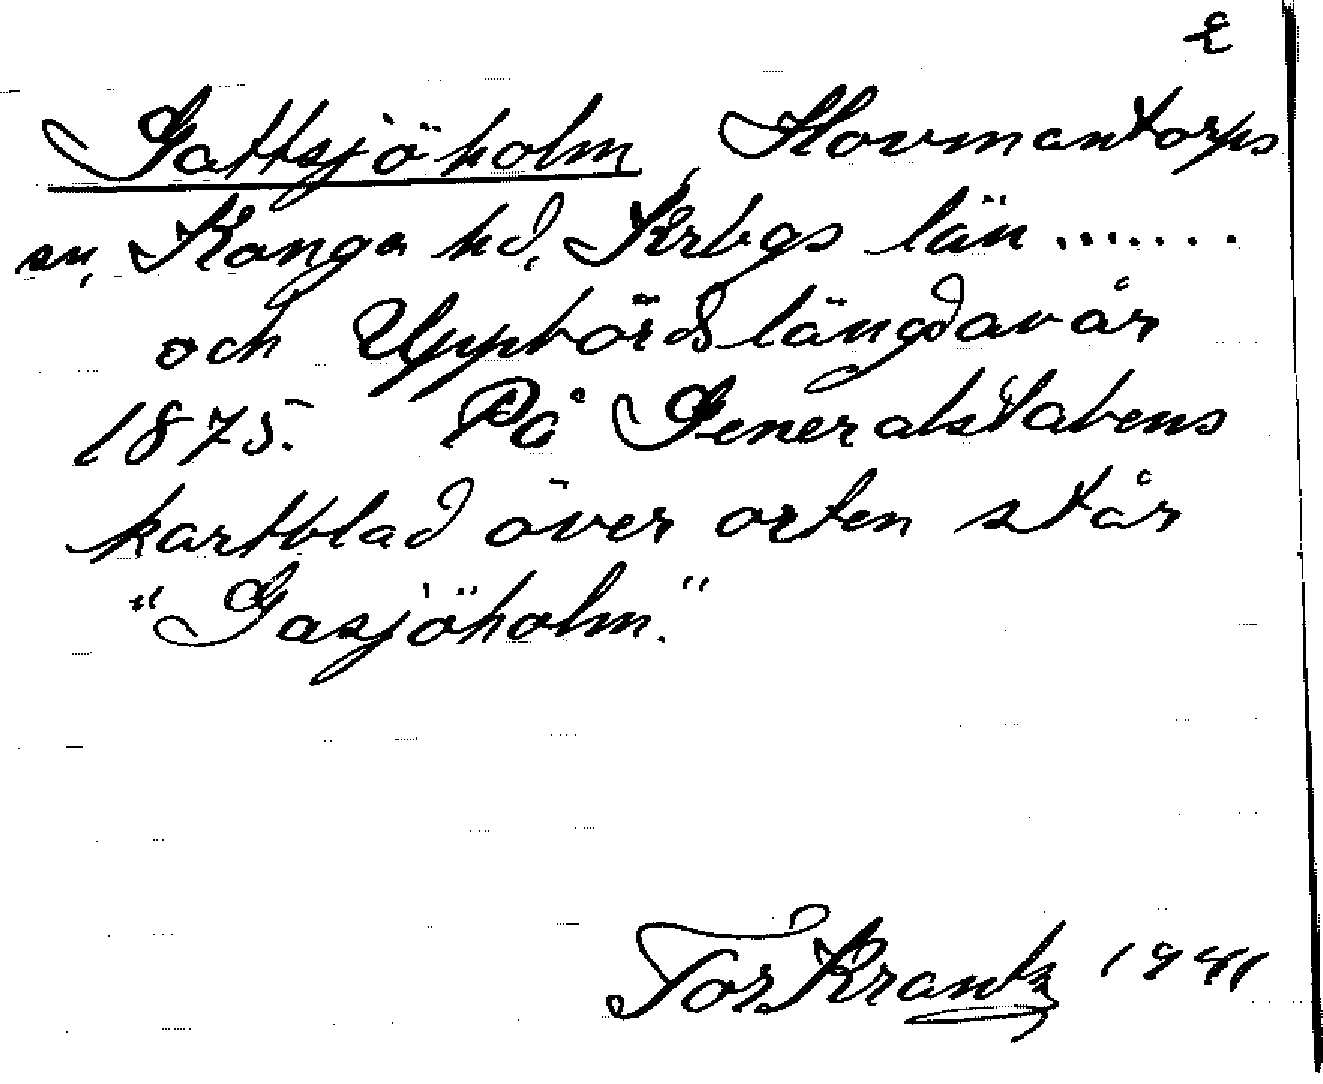 Gattsjöholm, Hovmantorps
sn, Konga hd, Krbgs län.......
och Uppbördslängd av år
1875. På Generalstabens
kartblad över orten står
"Gasjöholm."
Tor Krantz 1941